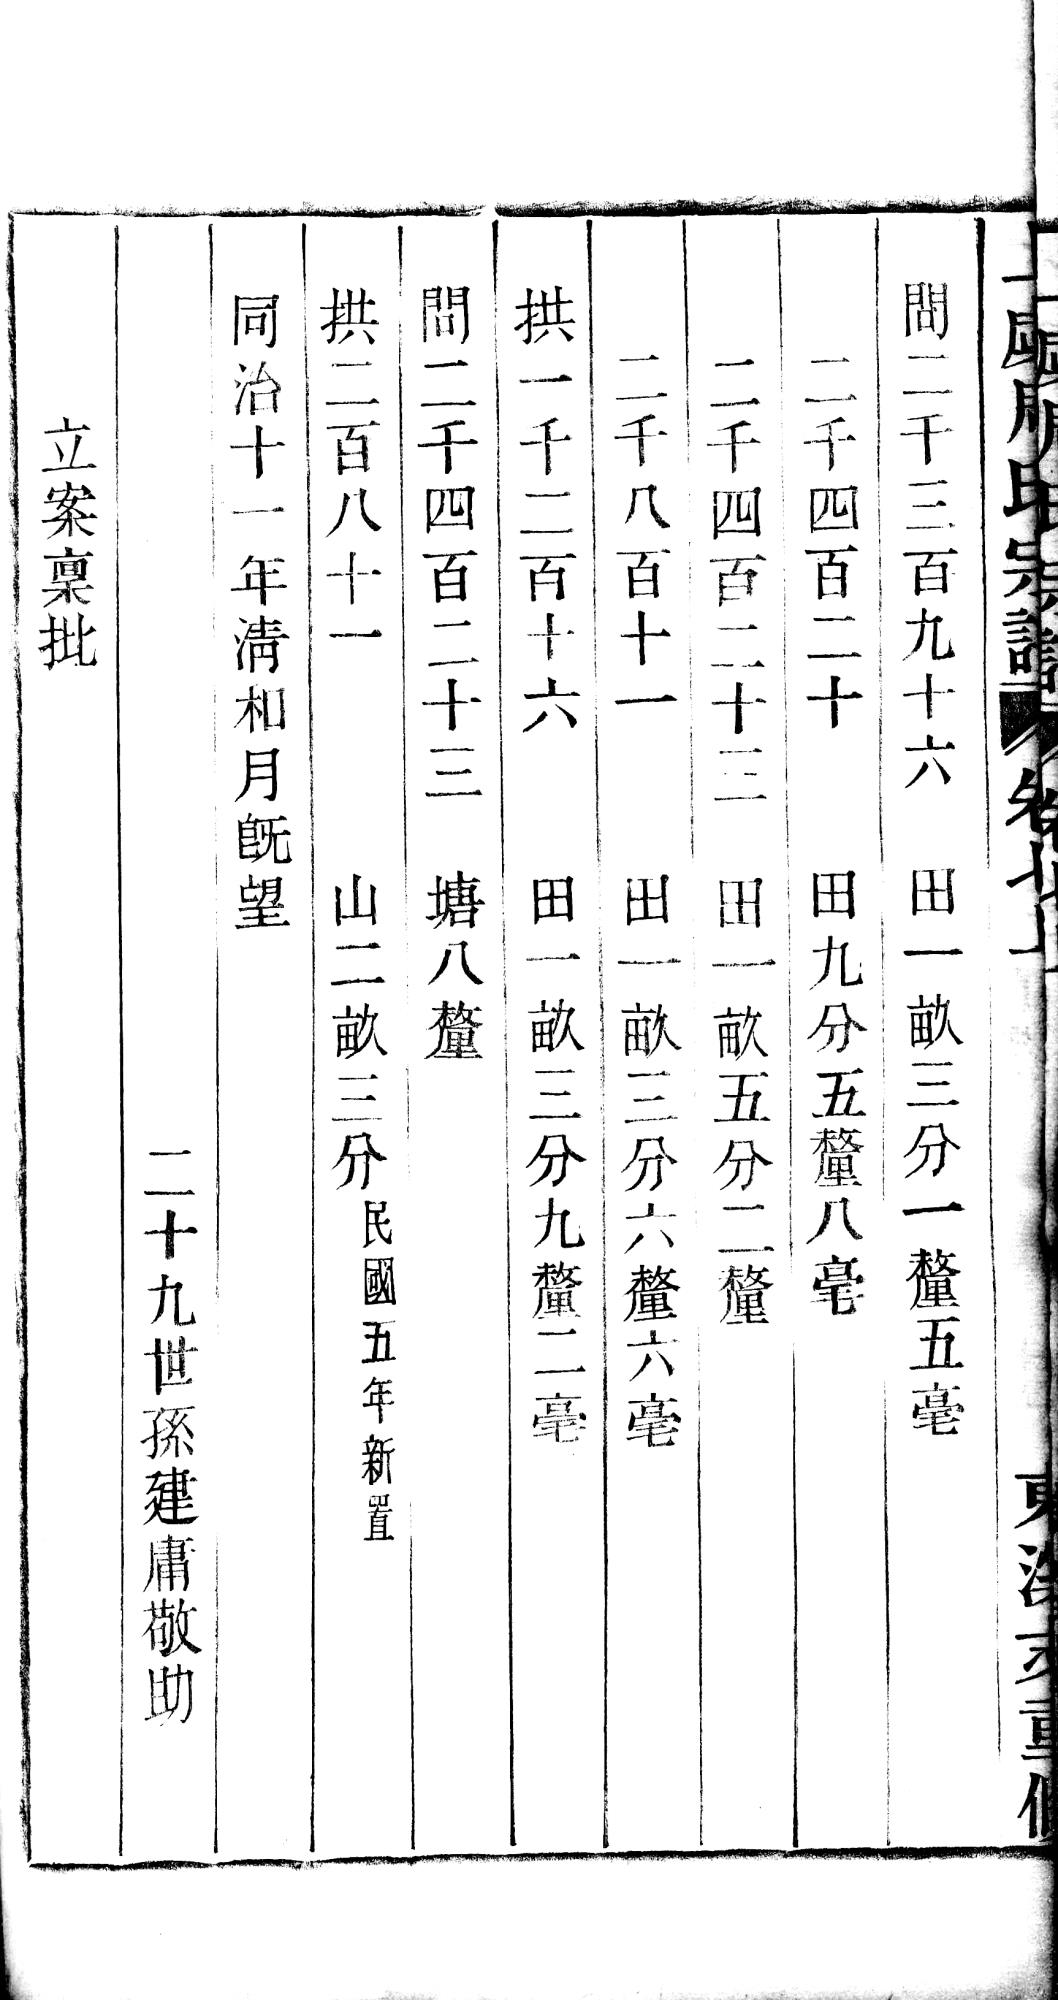 問二千三百九十六　田一畝三分一釐五毫
二千四百二十　田九分五釐八毫
二千四百二十三　田一畝五分二釐
二千八百十一　田一畝三分六釐六毫
拱一千二百十六　田一畝三分九釐二毫
問二千四百二十三　塘八釐
拱二百八十一　山二畝三分民國五年新置
同治十一年清和月既望
二十九世孫建庸敬助
立案稟批